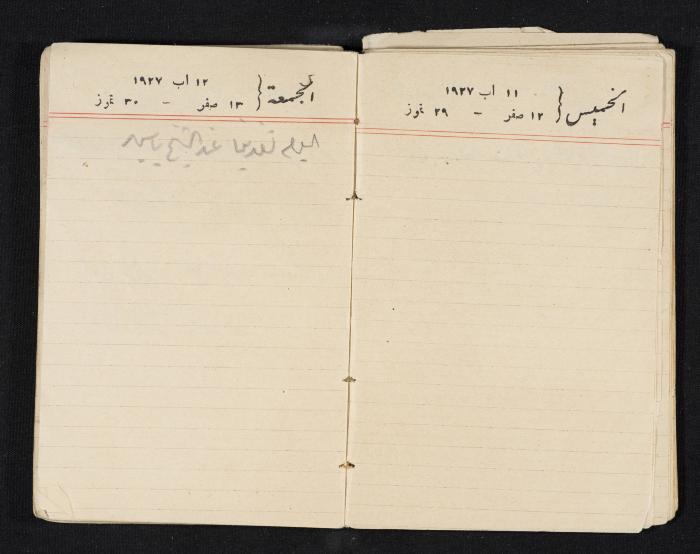 الخميس { ١١ اب ١٩٢٧
١٢ صفر - ٢٩ تموز
الجمعة { ١٢ اب ١٩٢٧
١٣ صفر - ٣٠ تموز
اليوم تغدينا عند الشيخ